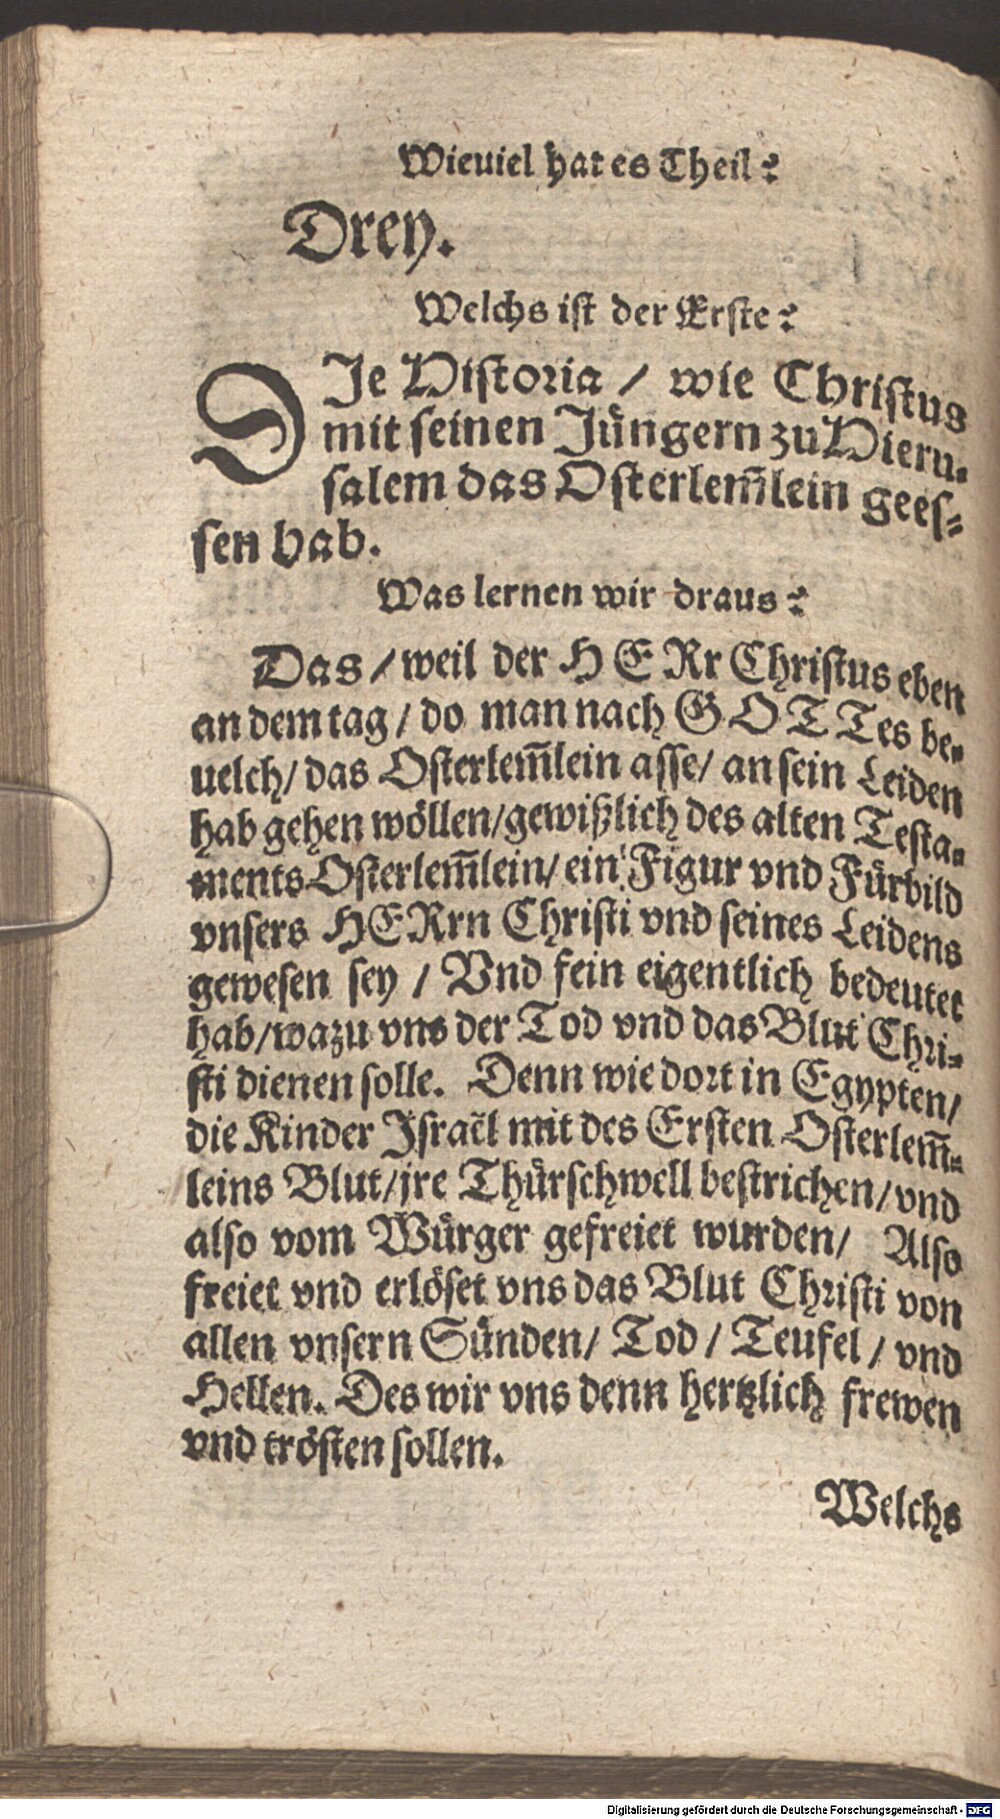 Wieuiel hat es Theil?
Drey.
Welchs ist der Erste?
DIe Historia / wie Christus
mit seinen Jüngern zu Hieru-
salem das Osterlem̃lein gees-
sen hab.
Was lernen wir draus?
Das / weil der HERr Christus eben
an dem tag / do man nach GOTTes be-
uelch / das Osterlem̃lein asse / an sein Leiden
hab gehen wöllen / gewißlich des alten Testa-
ments Osterlem̃lein / ein Figur vnd Fürbild
vnsers HERrn Christi vnd seines Leidens
gewesen sey / Vnd fein eigentlich bedeutet
hab / wazu vns der Tod vnd das Blut Chri-
sti dienen solle. Denn wie dort in Egypten /
die Kinder Israel mit des Ersten Osterlem̃-
leins Blut / jre Thürschwell bestrichen / vnd
also vom Würger gefreiet wurden / Also
freiet vnd erlöset vns das Blut Christi von
allen vnsern Sünden / Tod / Teufel / vnd
Hellen. Des wir vns denn hertzlich frewen
vnd trösten sollen.
Welchs
Digitalisierung gefördert durch die Deutsche Forschungsgemeinschaft - DFG